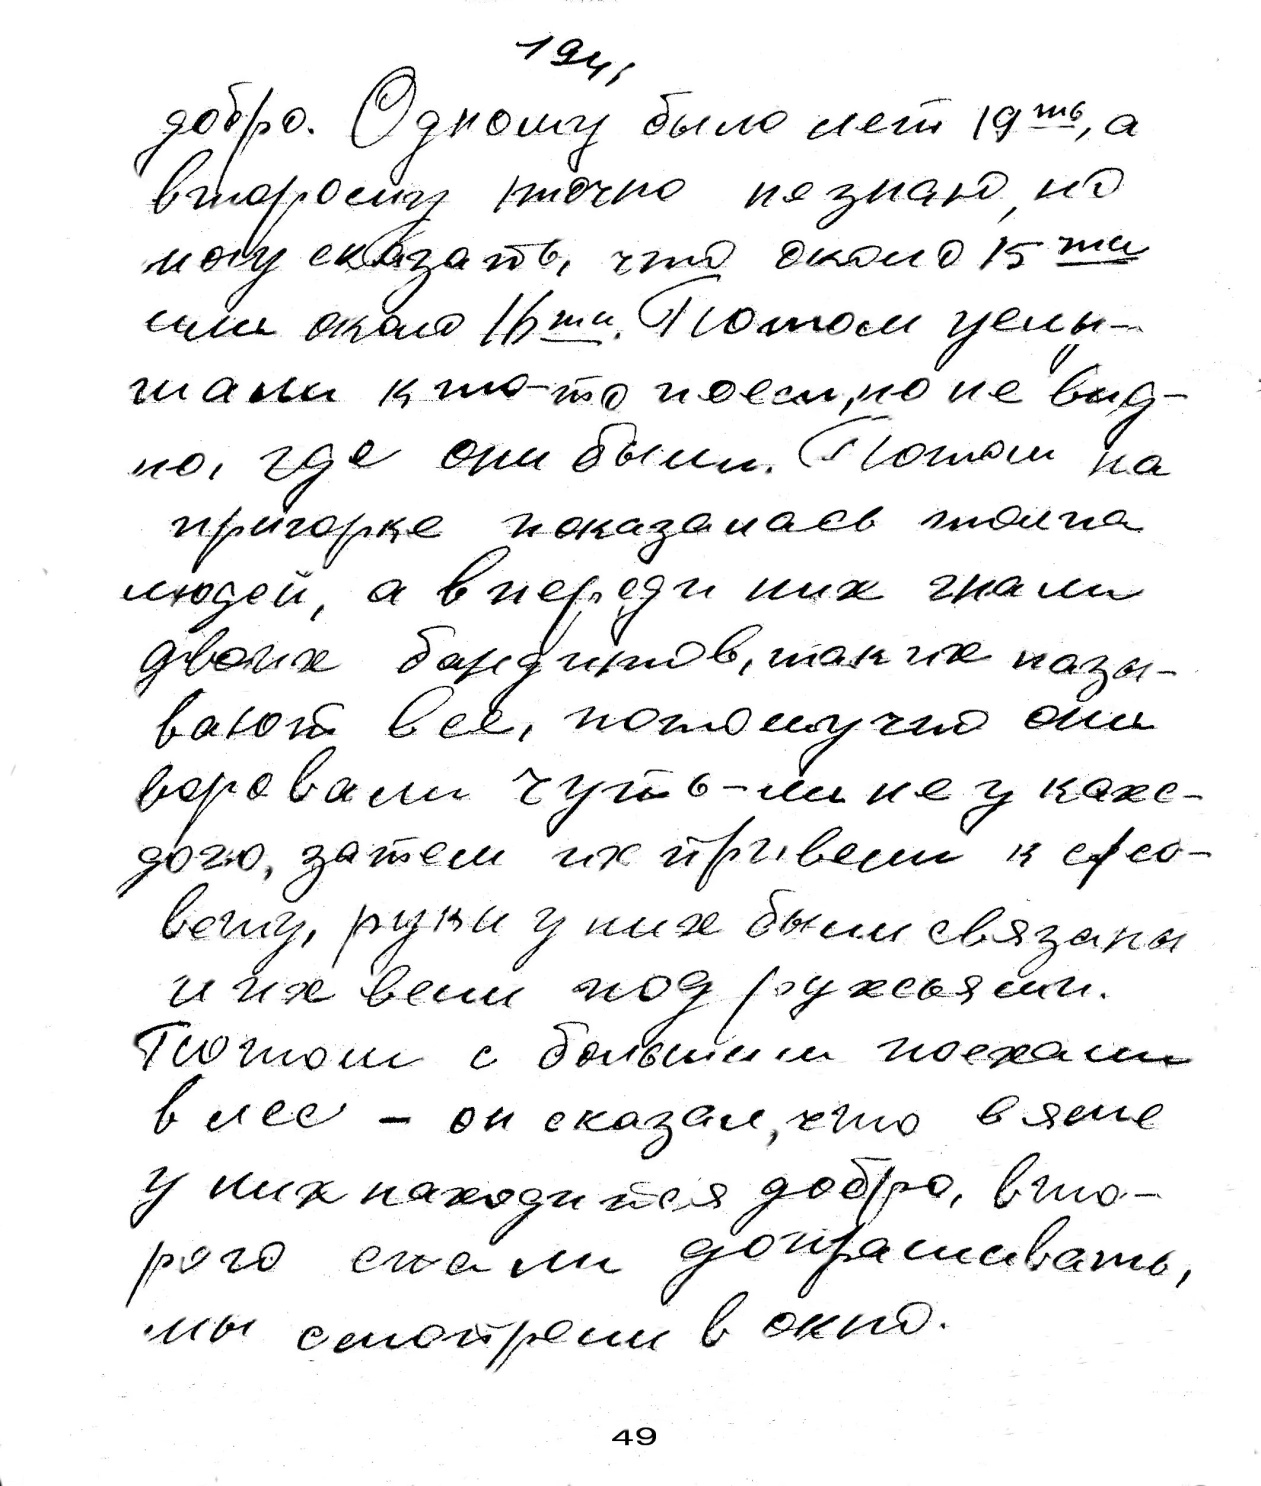 194,
добро. Одному было лет 19ть, а
второму точно не знаю, но
могу сказать, что около 15ти
или около 16ти. Потом услы-
шали кто-то поет, но не вид-
но, где они были. Потом на
пригорке показалась толпа
людей, а впереди них гнали
двоих бандитов, так их назы-
вают все, потому что они
воровали чуть-ли не у каж-
дого, затем их привели к
вету, руки у них были связаны
и их вели под ружьями.
Потом с большим поехали
в лес – он сказал, что в яме
у них находится добро, вто-
рого стали допрашивать,
мы смотрели в окно.
49